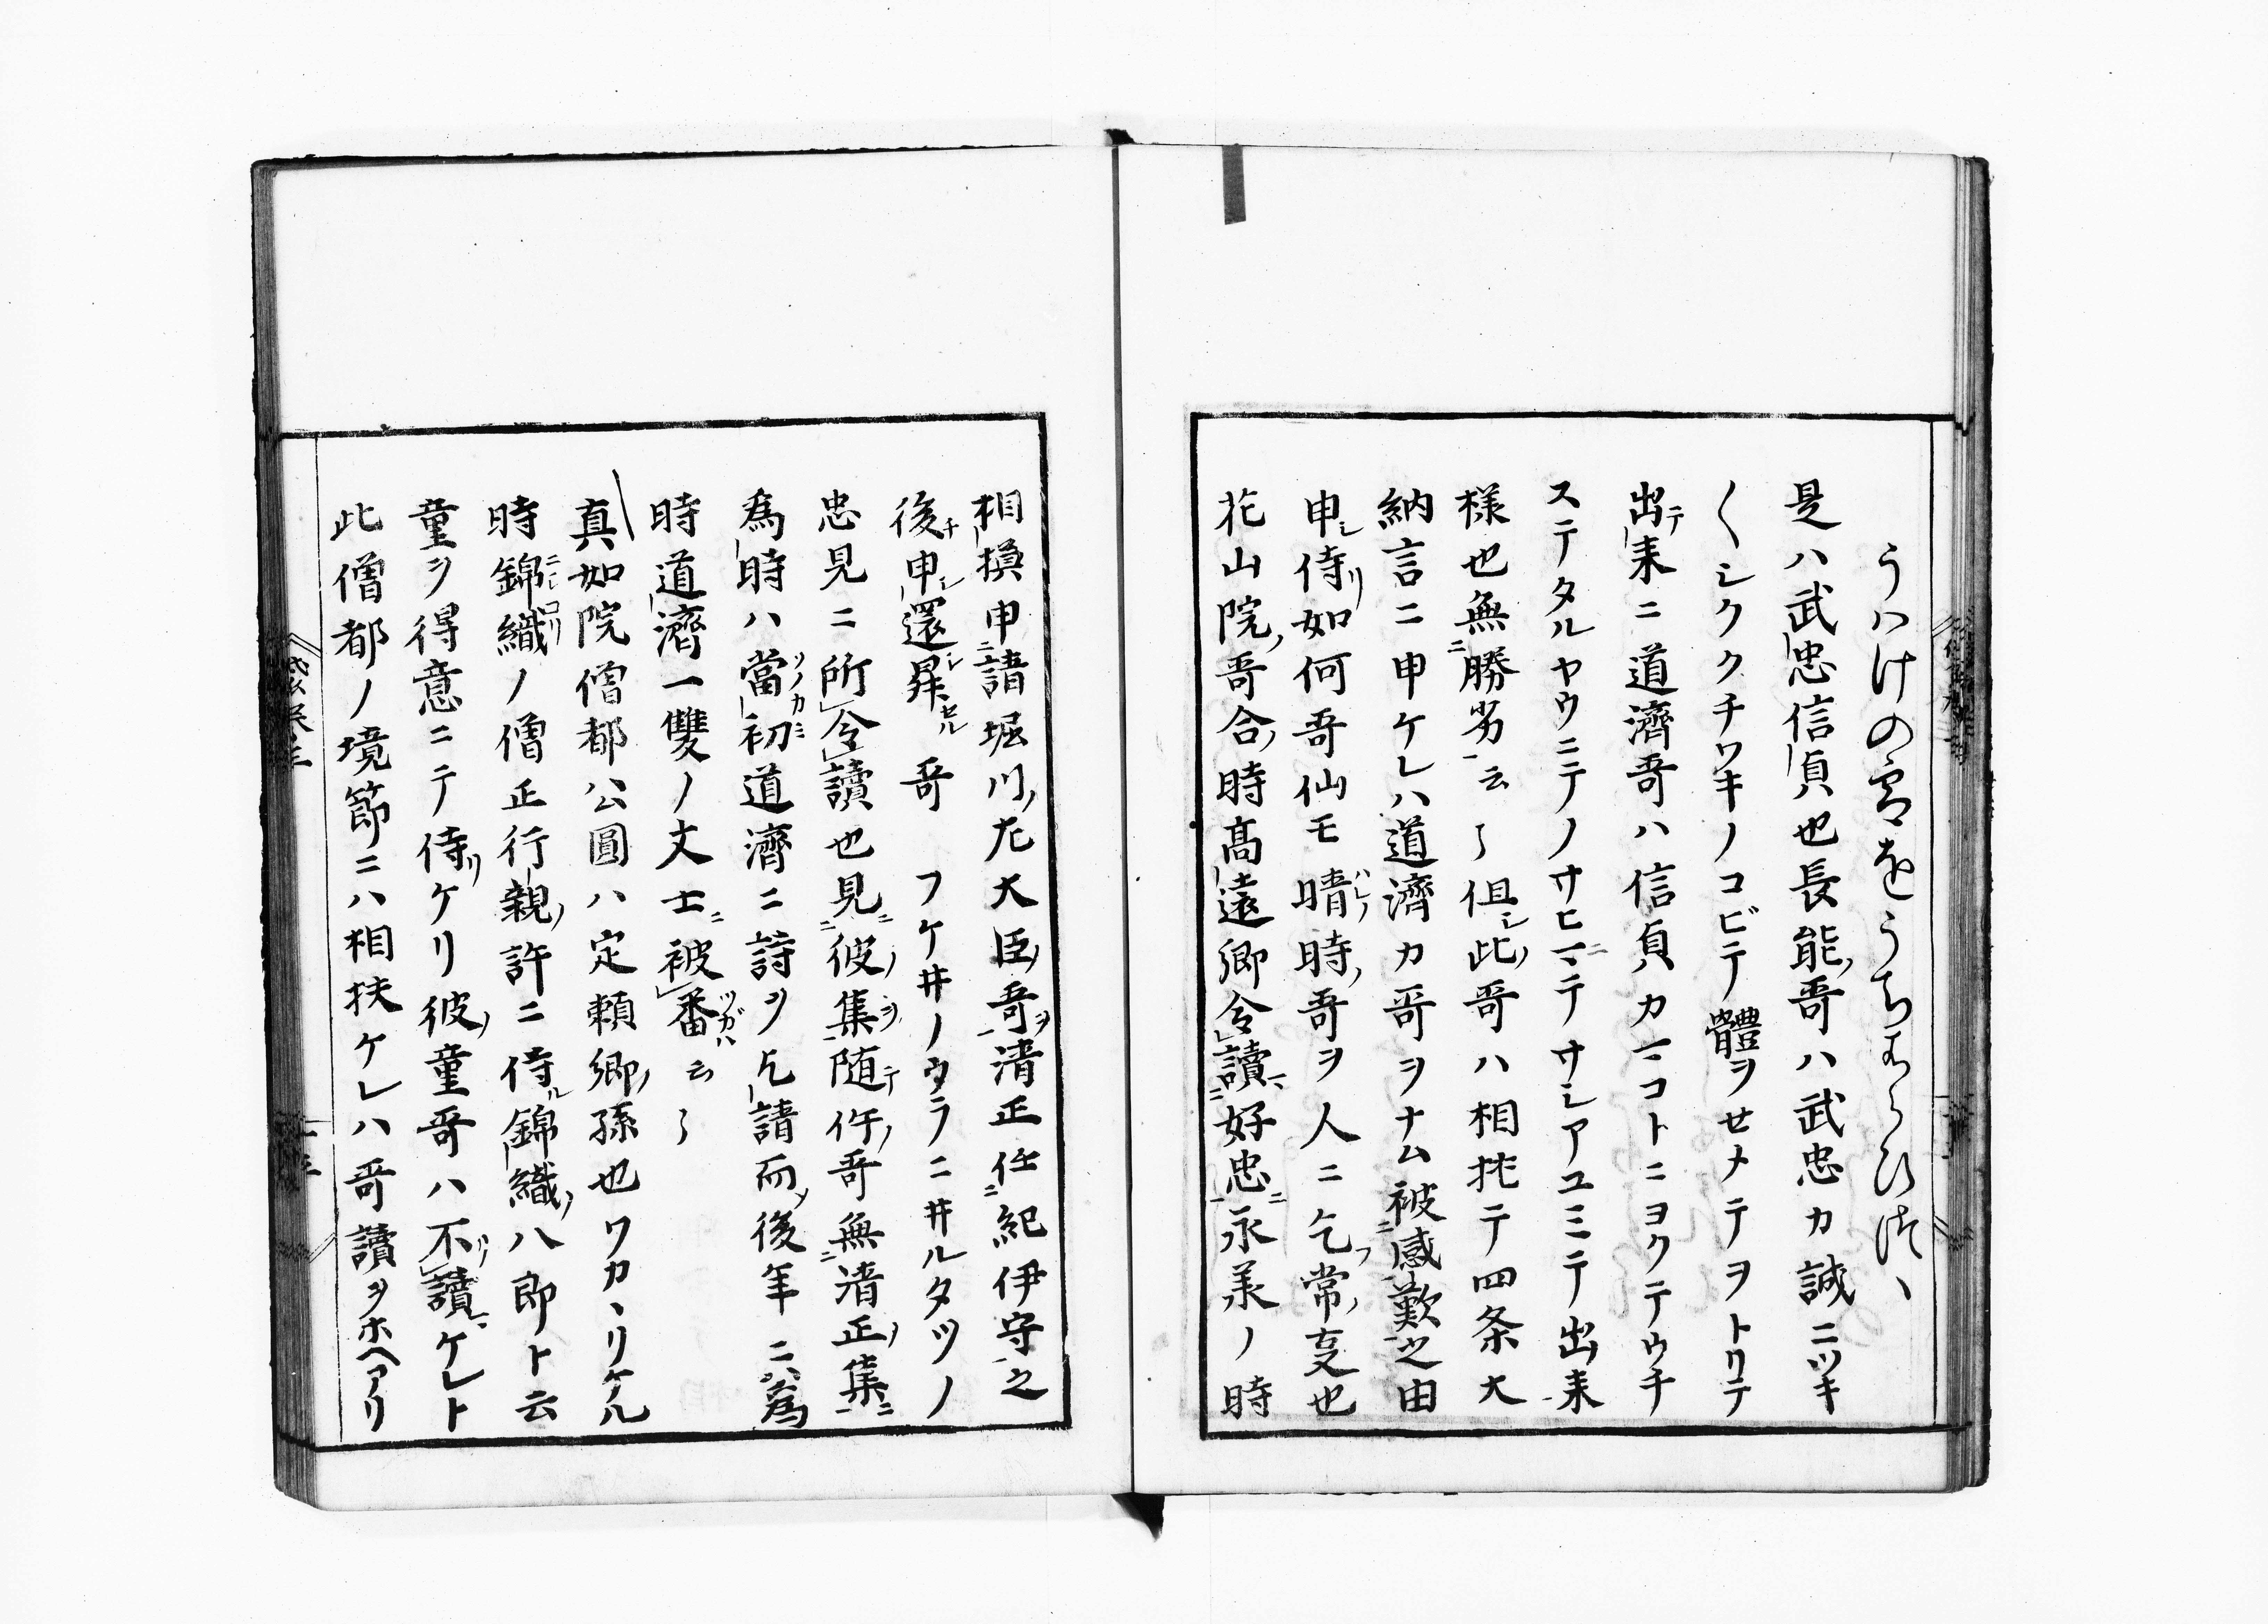 うハけの雪をうちはらひつゝ
是ハ武忠信貞也長能ノ哥ハ武忠カ誠ニツキ
〱シククチワキノコビテ體ヲセメテヲトリテ
出テ来ニ道濟哥ハ信貞カマコトニヨクテウチ
ステタルヤウニテノサヒマテサシアユミテ出来
様也無ニ勝劣一云々但シ此ノ哥ハ相扶テ四条大
納言ニ申ケレハ道濟カ哥ヲナム被ニ感歎一之由
申シ侍リ如何哥仙モ晴ハレノ時ノ哥ヲ人ニ乞フ常ノ事也
花山院ノ哥合ノ時高遠卿令レ讀ニマ好忠一ニ永承ノ時
相模申ニ請堀川ノ右大臣ノ哥ヲ一清正任ニ紀伊守一之
後チ申シ還昇シセル哥 フケ井ノウラニ井ルタツノ
忠見ニ所レ令レ讀也見ニ彼ノ集ヲ一随テ件ノ哥無ニ清正ノ集一ニ
為時ハ當ソノカミ初道濟ニ詩ヲ乞請而ノ後年ニハ為
時道濟一雙ノ文士ニ被レ番ツガハ云々
真如院僧都公圓ハ定頼卿ノ孫也ワカヽリケル
時錦織ニシコリノ僧正行親ノ許ニ侍ル錦織ノ八郎ト云
童ヲ得意ニテ侍リケリ彼ノ童哥ハ不レ讀マケレト
此僧都ノ境節ニハ相扶ケレハ哥讀ヲホヘアリ